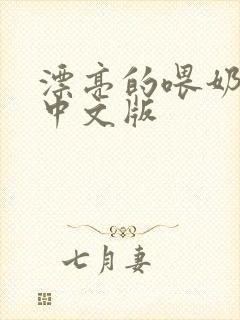 漂亮的喂奶
中文版
七月妻